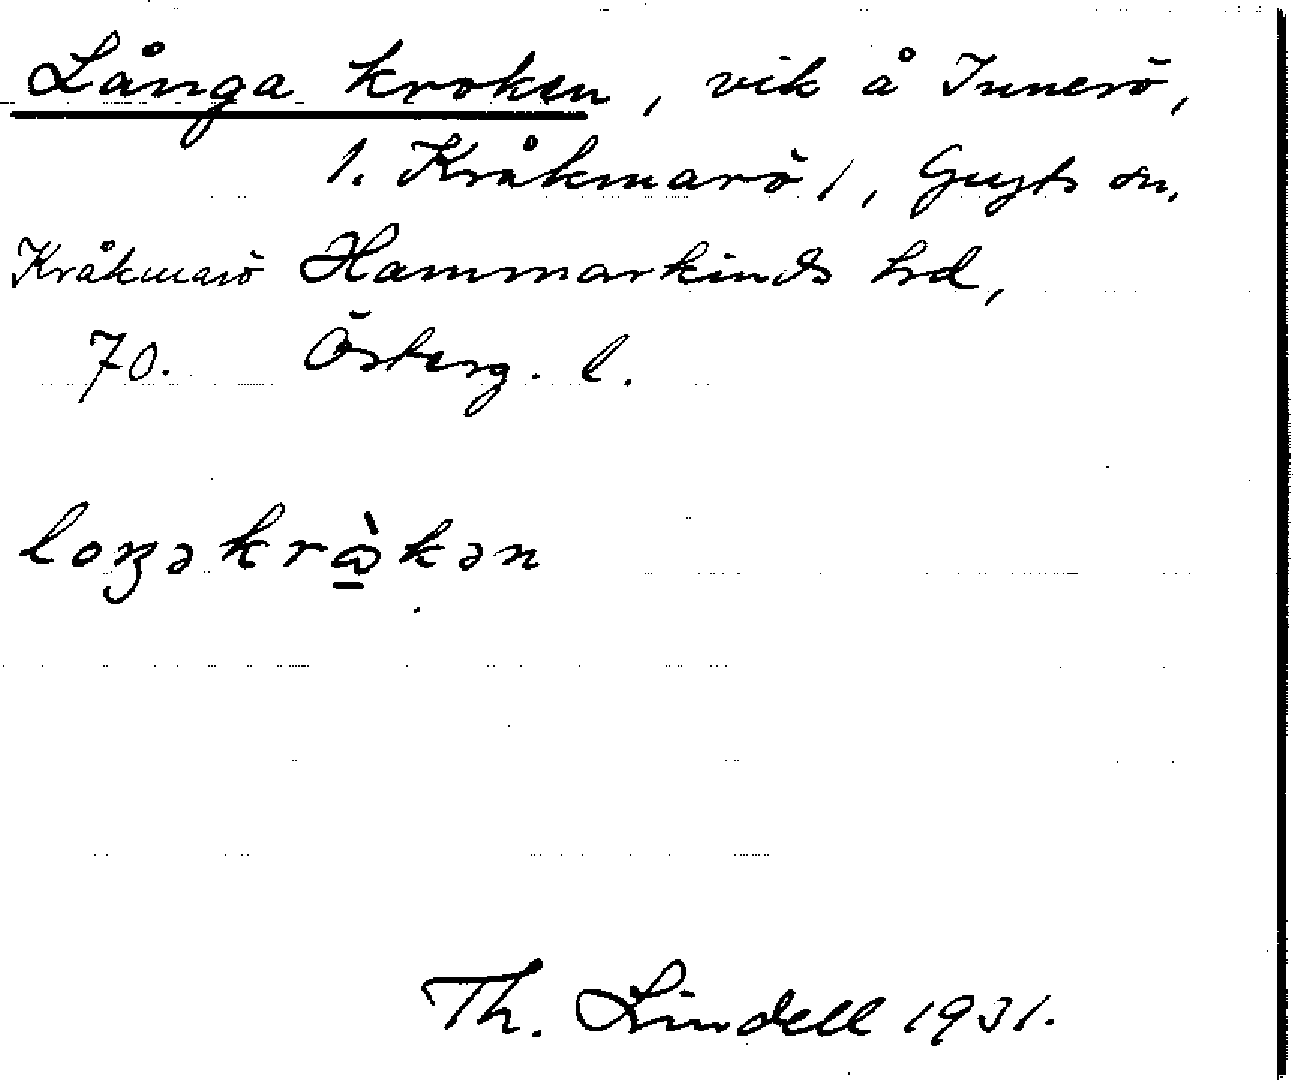 Långa kroken, vik å Innerö,
1. Kråkmarö 1, Gryts sn,
Kråkmarö Hammarkinds hrd,
70. Österg. l.
loŋəkrὼkən
Th. Lindell 1931.